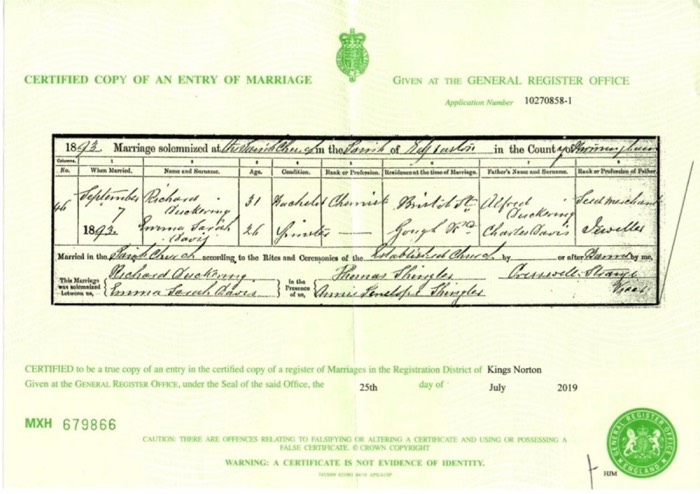 CERTIFIED COPY OF AN ENTRY OF MARRIAGE
GIVEN AT THE GENERAL REGISTER OFFICE
Application Number 10270858-1
1893. Marriage solemnized at the Parish Church in the Parish of Edgbaston in the County of
Columns. 1 2 3 4 5 6 7 8
No. When Married. Name and Surname. Age. Condition. Rank or Profession. Residence at the time of Marriage. Father's Name and Surname. Rank or Profession of Father.
46 September Richard 31 Bachelor Chemist Bristol St. Alfred Seed merchant
7 Duckering Duckering
1893. Emma Sarah 26 Spinster — Gough Rd Charles Davis Jeweller
Davis
Married in the Parish Church according to the Rites and Ceremonies of the Established Church by or after Banns by me,
This Marriage was solemnized between us, Richard Duckering Emma Sarah Davis
in the Presence of us, Thomas Shingler Annie Penelope Shingler
Cresswell Strange
Vicar
CERTIFIED to be a true copy of an entry in the certified copy of a register of Marriages in the Registration District of Kings Norton
Given at the GENERAL REGISTER OFFICE, under the Seal of the said Office, the 25th day of July 2019
MXH 679866
CAUTION: THERE ARE OFFENCES RELATING TO FALSIFYING OR ALTERING A CERTIFICATE AND USING OR POSSESSING A
FALSE CERTIFICATE. © CROWN COPYRIGHT
WARNING: A CERTIFICATE IS NOT EVIDENCE OF IDENTITY.
GENERAL REGISTER OFFICE
ENGLAND
HJM